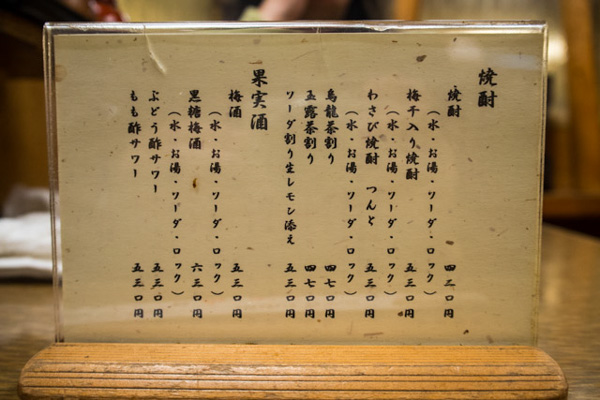 焼酎
焼酎 四三〇円
（水・お湯・ソーダ・ロック）
梅干入り焼酎 五三〇円
（水・お湯・ソーダ・ロック）
わさび焼酎 つんと 五三〇円
（水・お湯・ソーダ・ロック）
烏龍茶割り 四七〇円
玉露茶割り 四七〇円
ソーダ割り生レモン添え 五三〇円
果実酒
梅酒 五三〇円
（水・お湯・ソーダ・ロック）
黒糖梅酒 六三〇円
（水・お湯・ソーダ・ロック）
ぶどう酢サワー 五三〇円
もも酢サワー 五三〇円